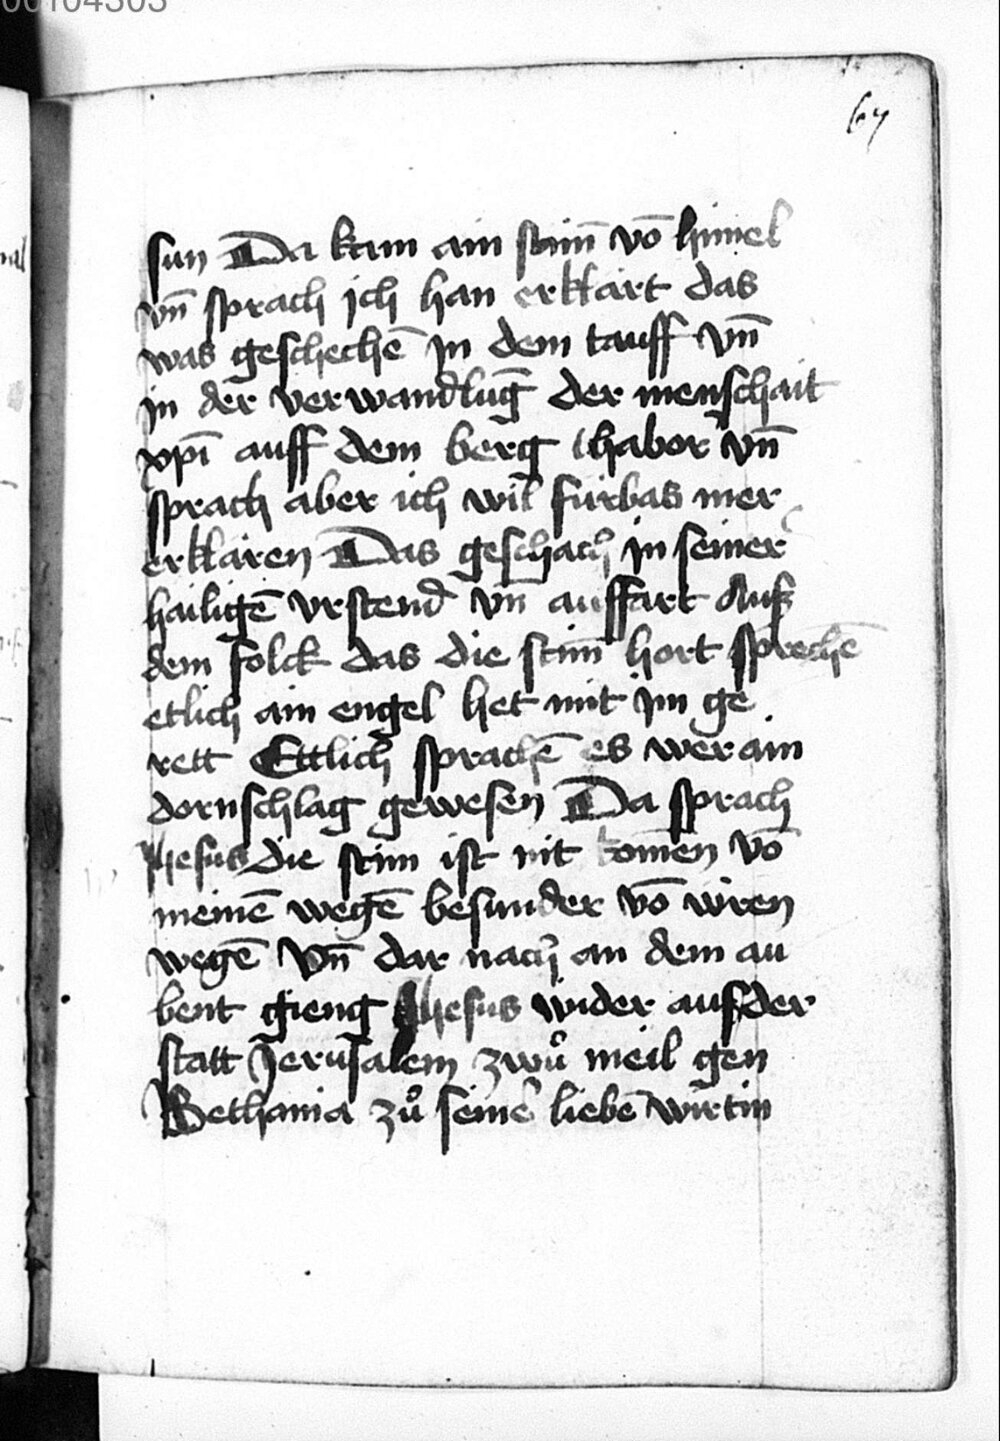 00104303
67
sun Da kam ain stim̄ vō himel
vn̄ sprach ich han erklart das
was geschechē jn dem tauff vn̄
jn der verwandlūg der menschait
xp̄i auff dem berg thabor vn̄
sprach aber ich wil fürbas mer
erklären Das geschach jn seiner
hailigē vrstend vn̄ auffart Auß
dem folck das die stim̄ hort sprechē
etlich ain engel het mit jm ge
rett Ettlich sprachē es wer ain
dornschlag gewesen Da sprach
jhesus die stim ist nit komē̄n vō
meinē wegē besunder vō wiren
wegē Vn̄ dar nach an dem au
bent gieng jhesus wider auß der
statt Jerusalem zwů meil gen
Bethania zů seine liebē wirtin